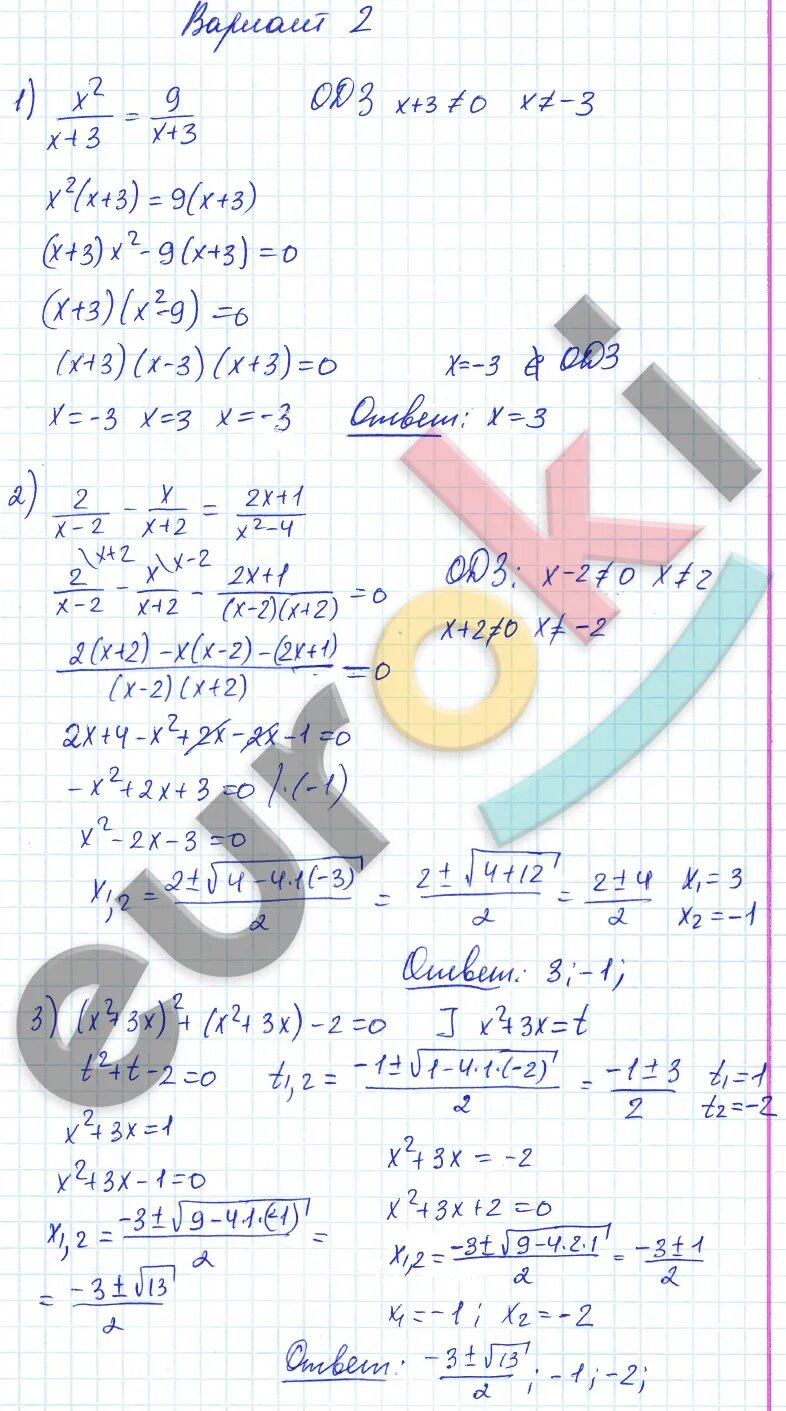 Вариант 2
1) x²/(x+3) = 9/(x+3) ОДЗ x+3≠0 x≠-3
x²(x+3) = 9(x+3)
(x+3)x² - 9(x+3) = 0
(x+3)(x²-9) = 0
(x+3)(x-3)(x+3) = 0 x=-3 ∉ ОДЗ
x=-3 x=3 x=-3 Ответ: x=3
2) 2/(x-2) - x/(x+2) = (2x+1)/(x²-4)
2\x+2/(x-2) - x\x-2/(x+2) - (2x+1)/((x-2)(x+2)) = 0 ОДЗ: x-2≠0 x≠2
x+2≠0 x≠-2
(2(x+2) - x(x-2) - (2x+1))/((x-2)(x+2)) = 0
2x+4-x²+2x-2x-1=0
-x²+2x+3=0 /·(-1)
x²-2x-3=0
x₁,₂ = (2±√(4-4·1(-3)))/2 = (2±√(4+12))/2 = (2±4)/2 x₁=3 x₂=-1
Ответ: 3; -1;
3) (x²+3x)²+(x²+3x)-2=0 ] x²+3x=t
t²+t-2=0 t₁,₂ = (-1±√(1-4·1·(-2)))/2 = (-1±3)/2 t₁=1 t₂=-2
x²+3x=1
x²+3x-1=0
x₁,₂ = (-3±√(9-4·1·(-1)))/2 =
= (-3±√13)/2
x²+3x=-2
x²+3x+2=0
x₁,₂ = (-3±√(9-4·2·1))/2 = (-3±1)/2
x₁=-1; x₂=-2
Ответ: (-3±√13)/2; -1; -2;
euroki